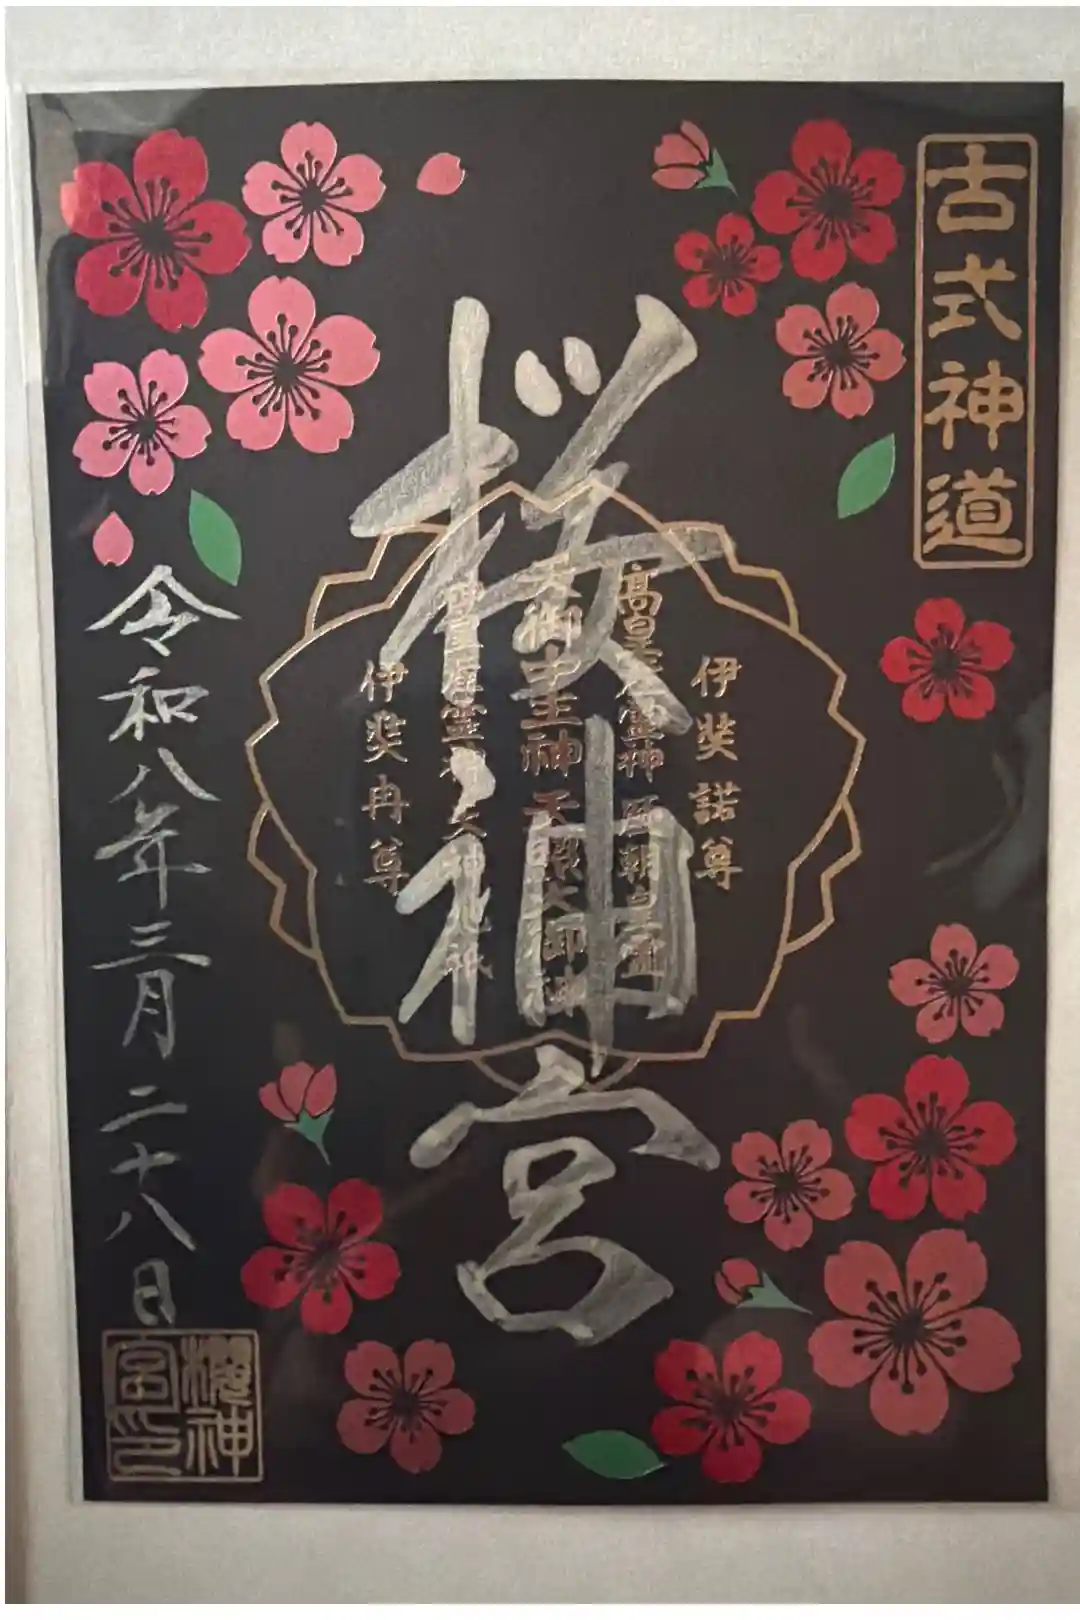 古式神道
伊奘諾尊
高皇産霊神 歴朝皇霊
天御中主神 天照大御神
神皇産霊神 天神地祇
伊奘冉尊
桜神宮
令和八年三月二十八日
櫻神
宮印